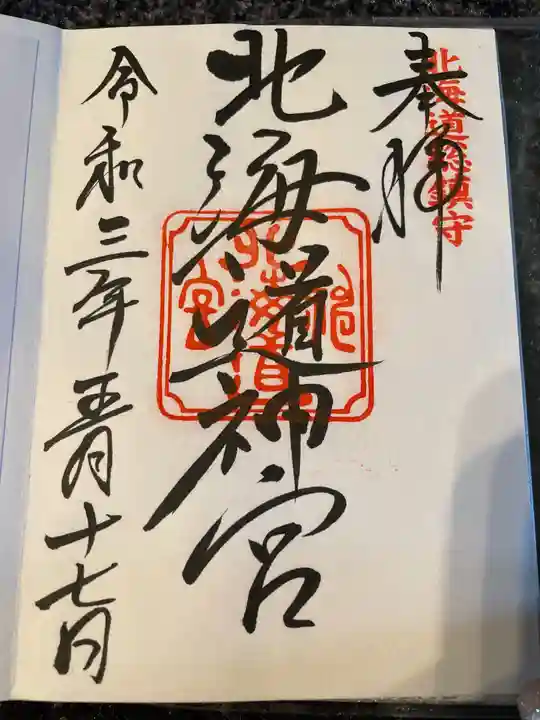 北海道総鎮守
奉拝
北海道神宮
北海道神宮
令和三年五月十七日